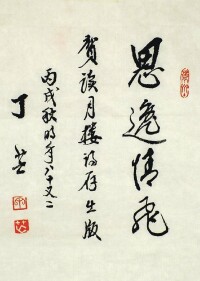 思逸情飛
賀談月樓詩存出版
丙戌秋時年八十又二
丁芒